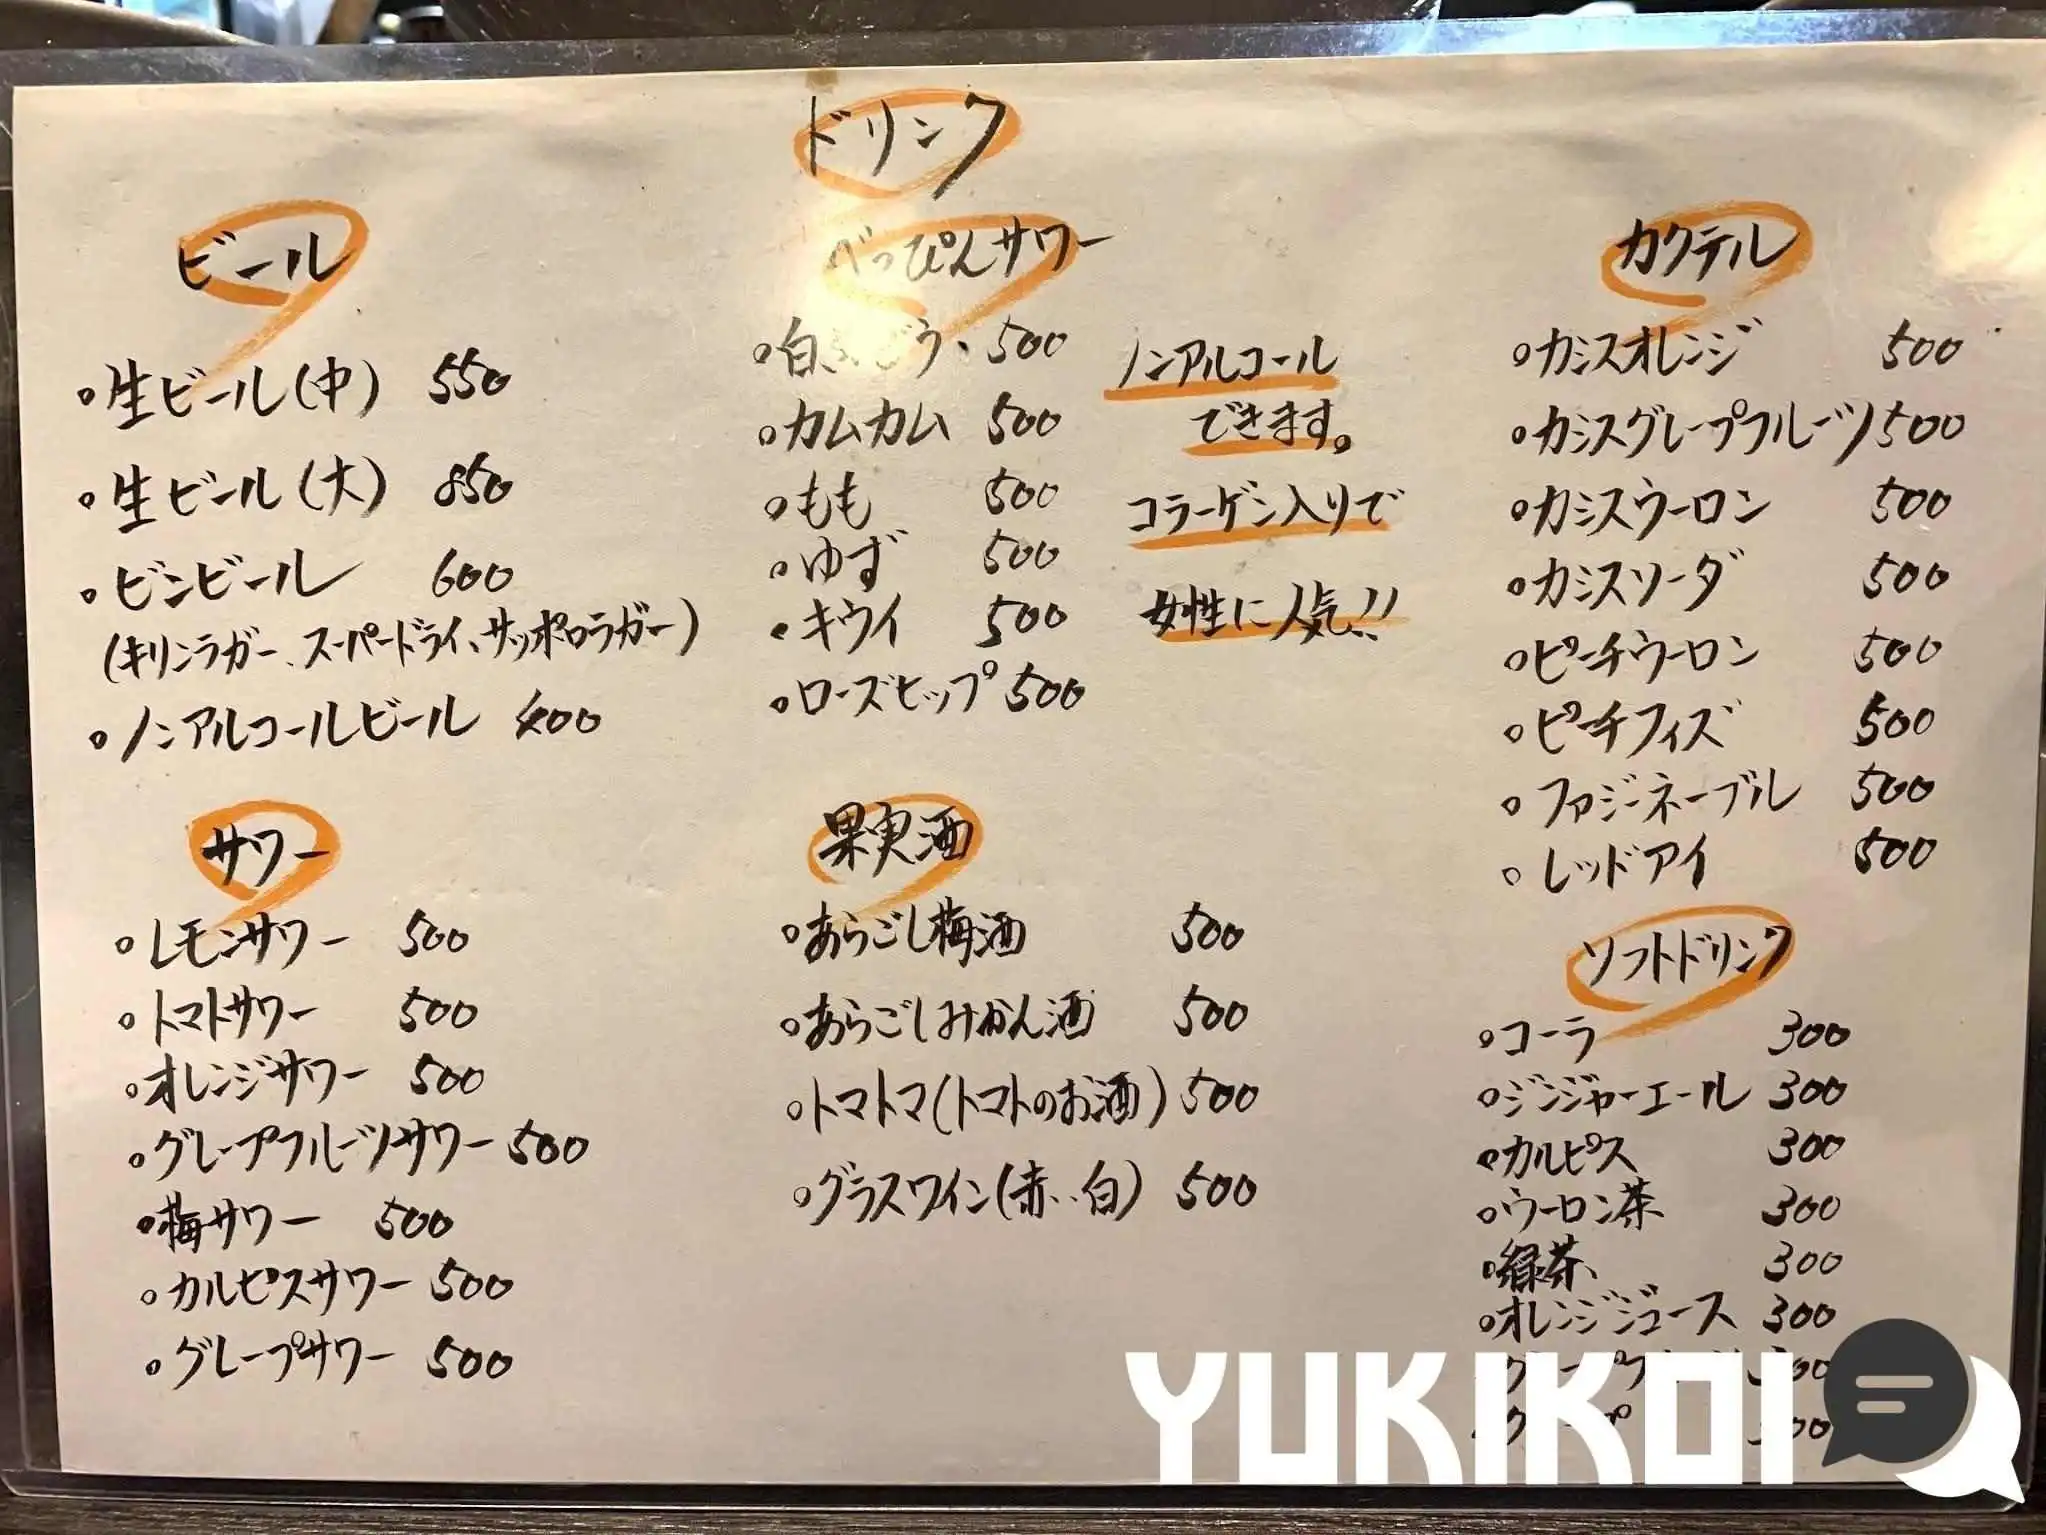 ドリンク
ビール
・生ビール(中) 550
・生ビール(大) 850
・ビンビール 600
(キリンラガー、スーパードライ、サッポロラガー)
・ノンアルコールビール 400
サワー
・レモンサワー 500
・トマトサワー 500
・オレンジサワー 500
・グレープフルーツサワー 500
・梅サワー 500
・カルピスサワー 500
・グレープサワー 500
べっぴんサワー
・白ぶどう 500
・カムカム 500
・もも 500
・ゆず 500
・キウイ 500
・ローズヒップ 500
ノンアルコール
できます。
コラーゲン入りで
女性に人気!!
果実酒
・あらごし梅酒 500
・あらごしみかん酒 500
・トマトマ(トマトのお酒) 500
・グラスワイン(赤・白) 500
カクテル
・カシスオレンジ 500
・カシスグレープフルーツ 500
・カシスウーロン 500
・カシスソーダ 500
・ピーチウーロン 500
・ピーチフィズ 500
・ファジーネーブル 500
・レッドアイ 500
ソフトドリンク
・コーラ 300
・ジンジャーエール 300
・カルピス 300
・ウーロン茶 300
・緑茶 300
・オレンジジュース 300
YUKIKOI